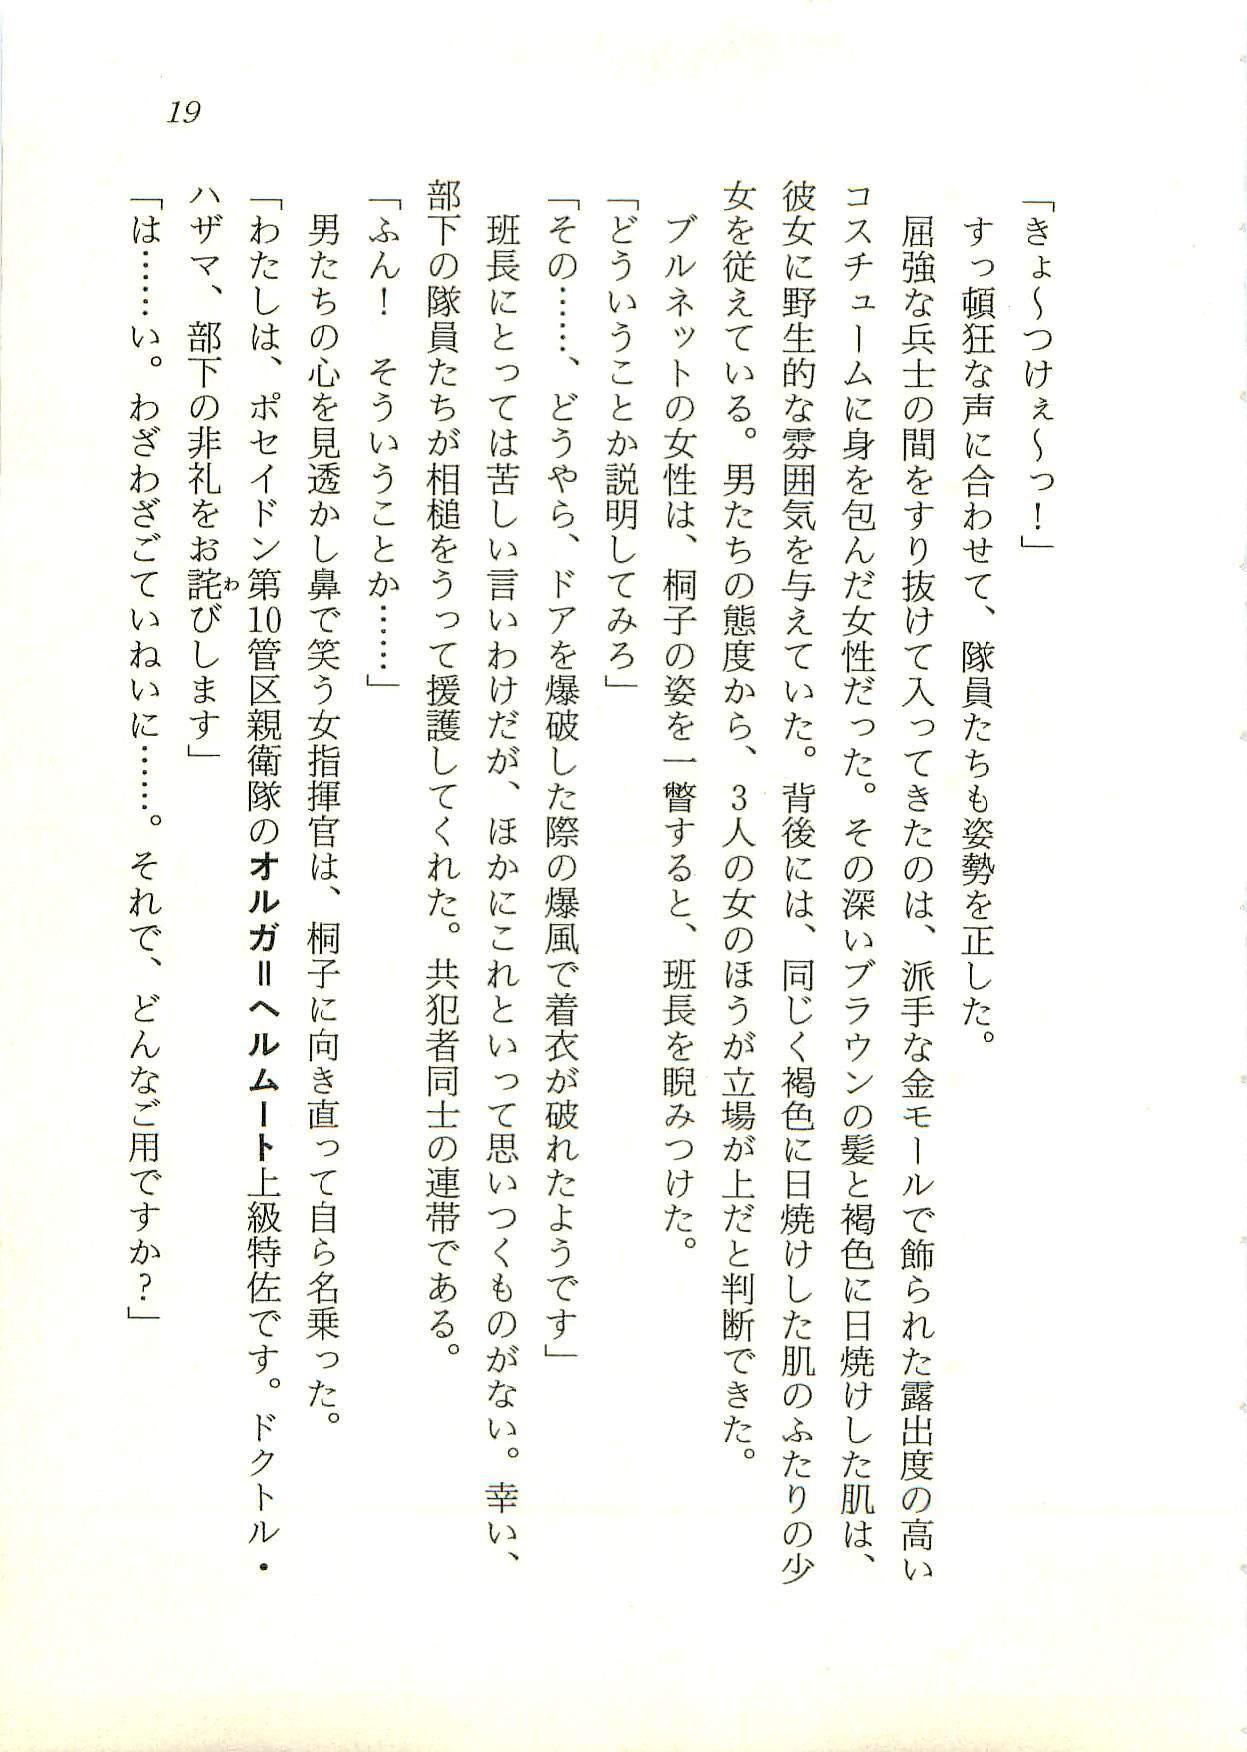 19
「きょ〜つけぇ〜っ！」
　すっ頓狂な声に合わせて、隊員たちも姿勢を正した。
　屈強な兵士の間をすり抜けて入ってきたのは、派手な金モールで飾られた露出度の高い
コスチュームに身を包んだ女性だった。その深いブラウンの髪と褐色に日焼けした肌は、
彼女に野生的な雰囲気を与えていた。背後には、同じく褐色に日焼けした肌のふたりの少
女を従えている。男たちの態度から、3人の女のほうが立場が上だと判断できた。
　ブルネットの女性は、桐子の姿を一瞥すると、班長を睨みつけた。
「どういうことか説明してみろ」
「その……、どうやら、ドアを爆破した際の爆風で着衣が破れたようです」
　班長にとっては苦しい言いわけだが、ほかにこれといって思いつくものがない。幸い、
部下の隊員たちが相槌をうって援護してくれた。共犯者同士の連帯である。
「ふん！　そういうことか……」
　男たちの心を見透かし鼻で笑う女指揮官は、桐子に向き直って自ら名乗った。
「わたしは、ポセイドン第10管区親衛隊のオルガ＝ヘルムート上級特佐です。ドクトル・
ハザマ、部下の非礼をお詫わびします」
「は……い。わざわざごていねいに……。それで、どんなご用ですか？」